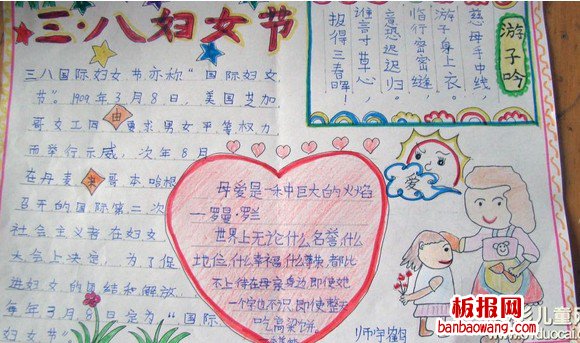 三·八妇女节
三八国际妇女节亦称“国际妇女
节”。1909年3月8日，美国芝加
哥女工因要求男女平等权力
而举行示威，次年8月
在丹麦哥本哈根
召开的国际第二次
社会主义者在妇女
大会上决定，为了促
进妇女的团结和解放
每年3月8日定为“国际
妇女节”
由
来
游子吟
慈母手中线，
游子身上衣。
临行密密缝，
意恐迟迟归。
谁言寸草心，
报得三春晖！
母爱是一种巨大的火焰
—罗曼·罗兰
世界上无论什么名誉，什么
地位，什么幸福，什么尊荣，都比
不上待在母亲身边，即使她
一个字也不识，即使整天
吃高粱饼。
爱
板报网
banbaowang.com